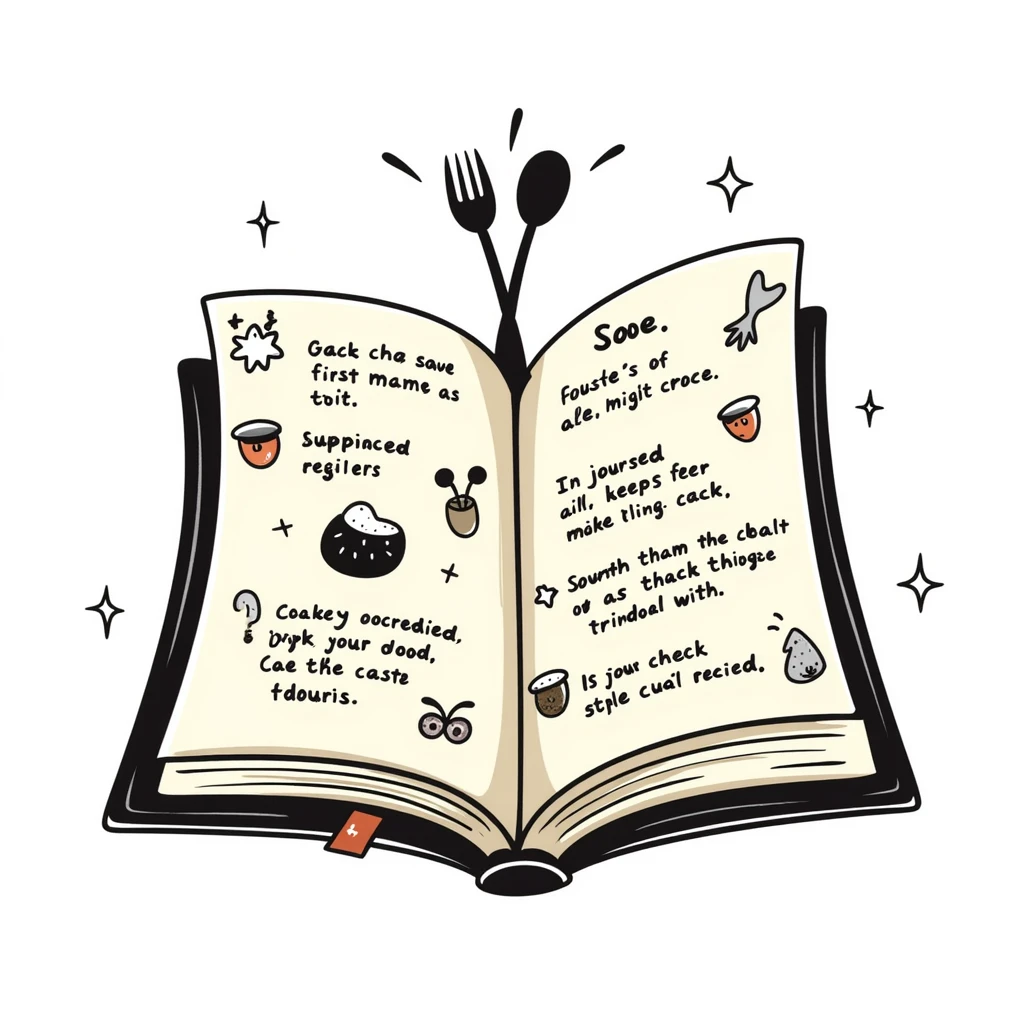 Gack cha save
first mame as
toit.
Suppinced
regilers
Coakey oocredied,
your dood,
Cae the caste
tdouris.
Sooe.
Fouste's of
ale. migit croce.
In joursed
aill, keeps feer
moke tling. cack,
Sowrth tham the cbalt
as thack thiogze
trindoal with.
Is your check
stple cua'l recied.